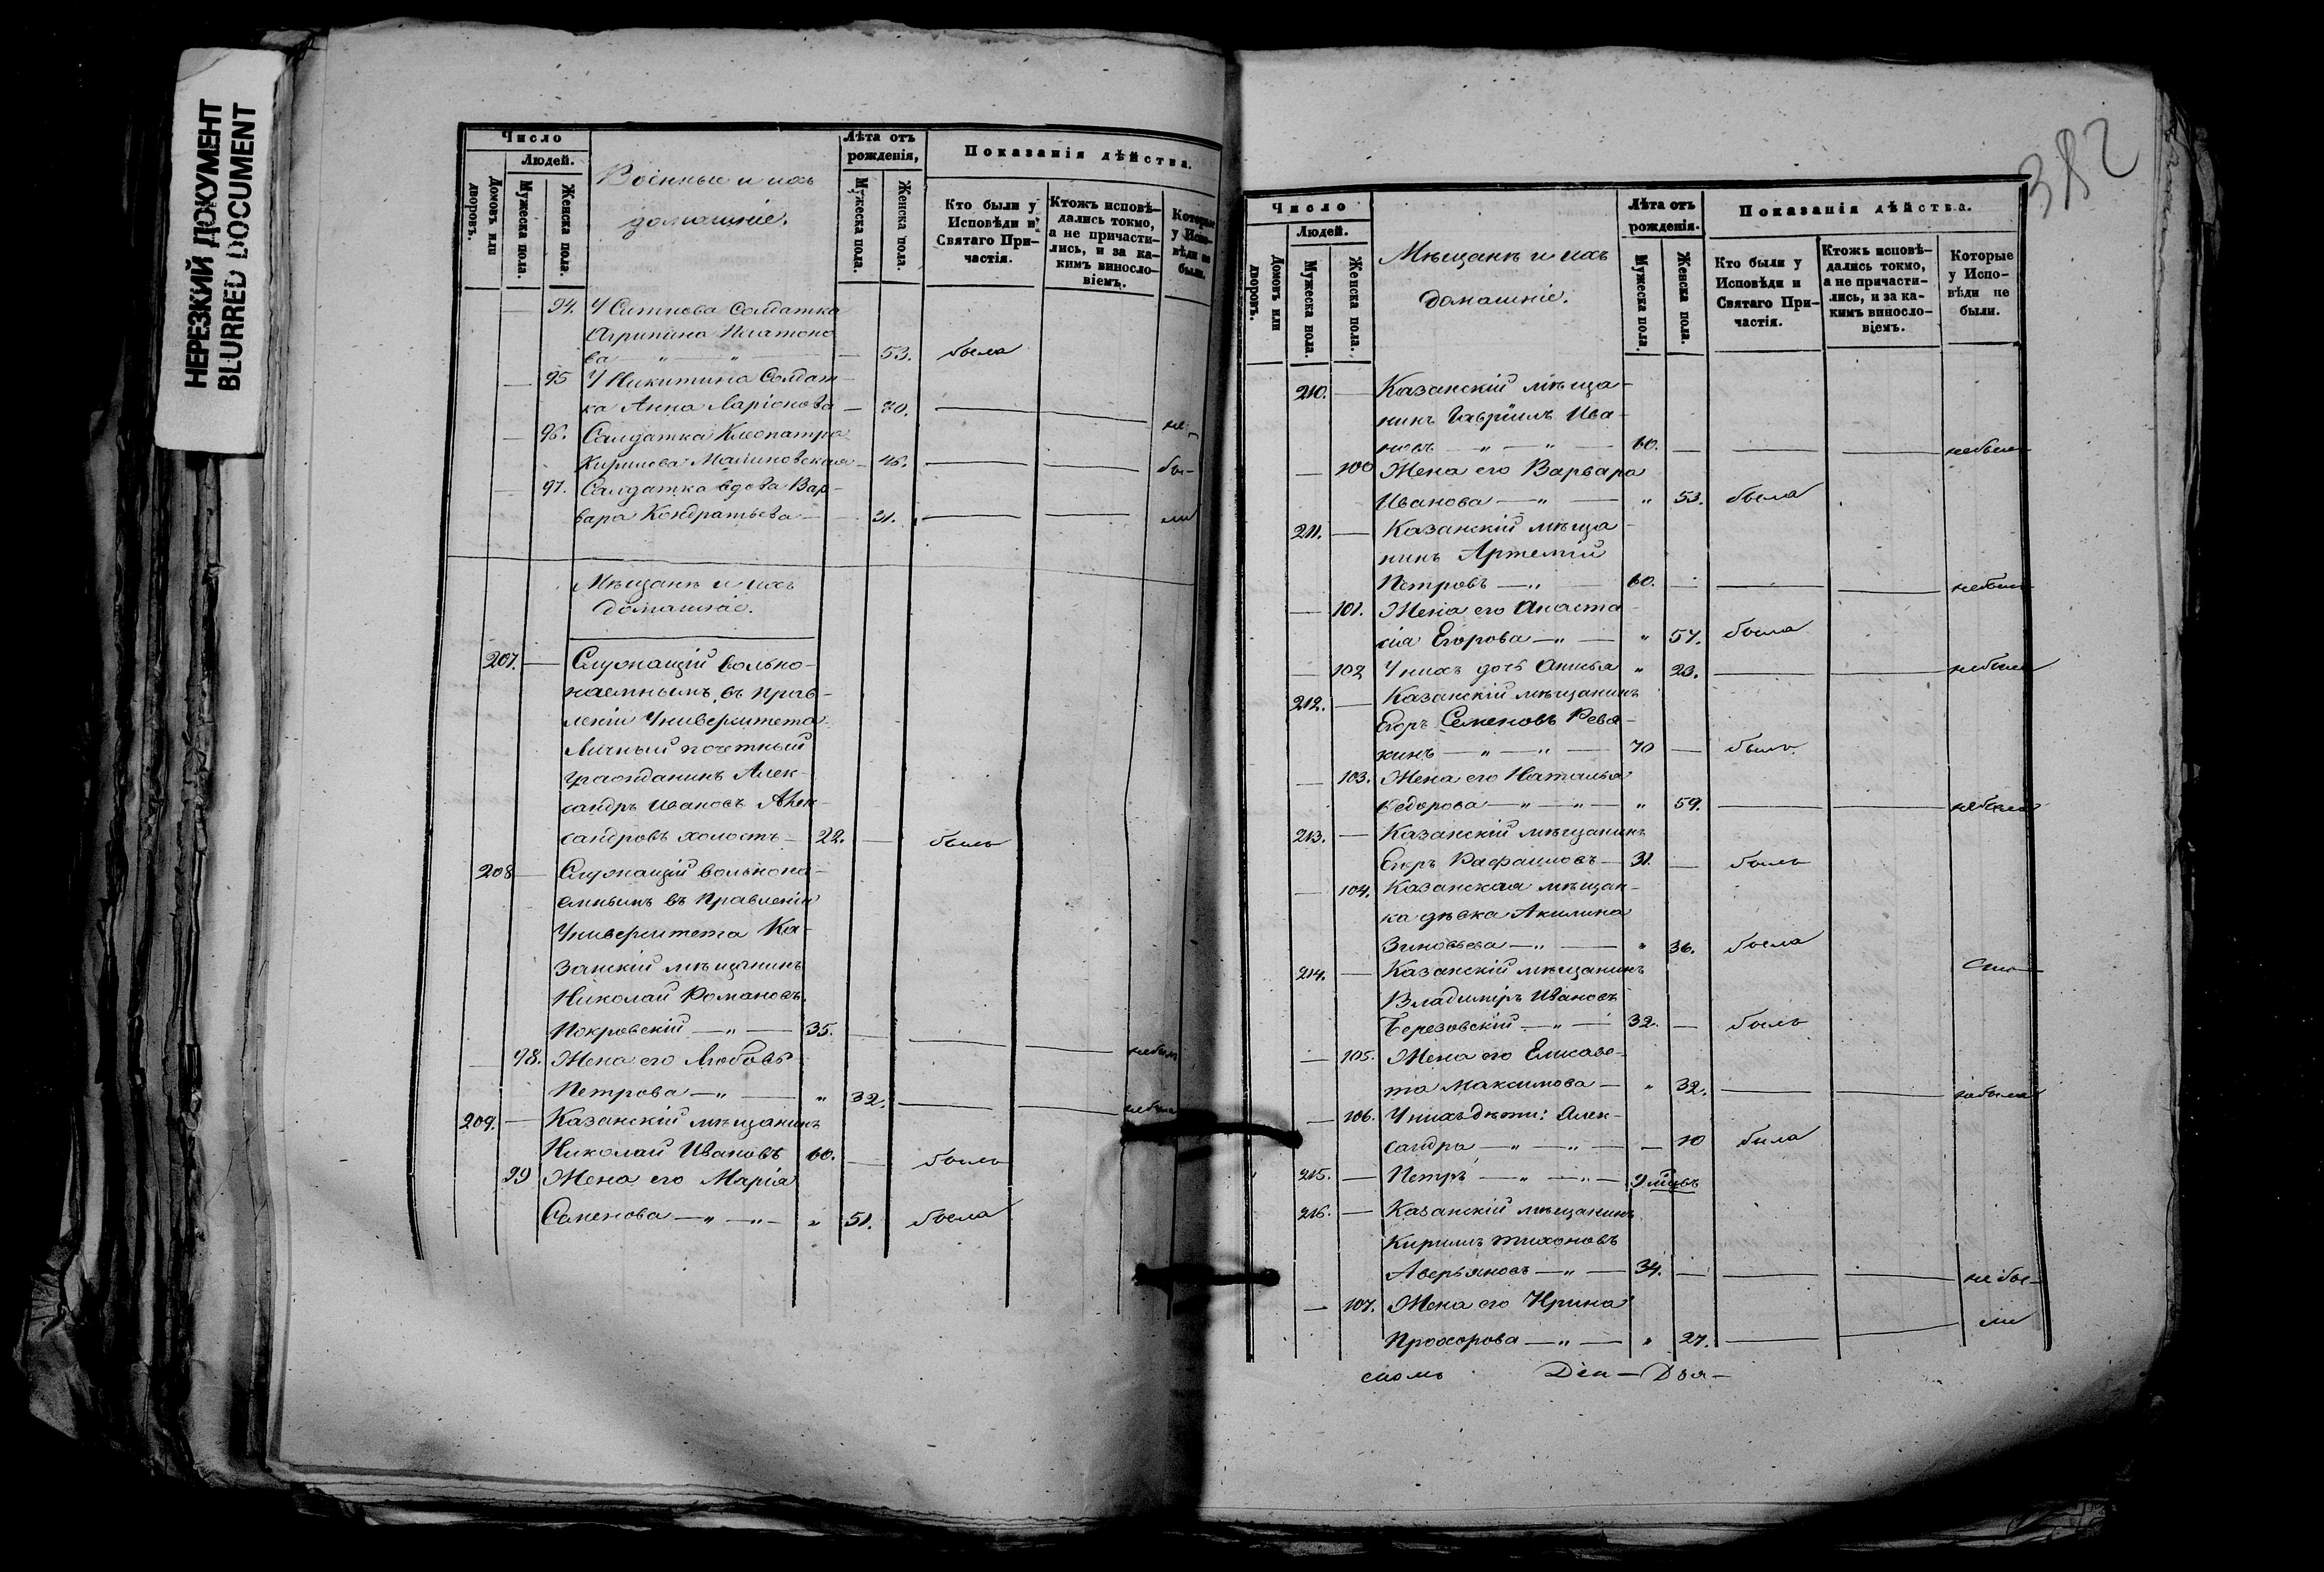 НЕРЕЗКИЙ ДОКУМЕНТ
BLURRED DOCUMENT
Число
Людей.
Домовъ или дворовъ.
Мужеска пола.
Женска пола.
Военные и ихъ
домашніе.
Лѣта отъ рожденія,
Мужеска пола.
Женска пола.
Показанія дѣйства.
Кто были у Исповѣди и Святаго При-частія.
Ктожъ исповѣ-дались токмо, а не причасти-лись, и за ка-кимъ винносло-віемъ.
Которые у Испо-вѣди не были.
— 94. У Ситнова Солдатка
Агрипина Платоно
ва — „ — „ — 53. была
— 95 У Никитина Солдат-
ка Анна Ларіонова — 70. — — не-
— 96. Салдатка Клеопатра
Кирилова Малиновская — 46. — — бы-
— 97. Салдатка вдова Вар-
вара Кондратьева — 31. — — ли
Мѣщане и ихъ
домашніе.
207. — Служащій вольно-
наемнымъ въ прав-
леніи Университета
Личный почетный
гражданинъ Алек-
сандръ Ивановъ Алек-
сандровъ холостъ — 22. — былъ
208 — Служащій вольнона-
емнымъ въ Правленіи
Университета Ка-
занскій мѣщанинъ
Николай Романовъ
Покровскій — „ — 35. — — — небылъ
— 98. Жена его Любовь
Петрова — „ — „ 32. — — небыла
209. — Казанскій мѣщанинъ
Николай Ивановъ 60. — былъ
99 Жена его Марія
Семенова — „ — „ — „ 51. была
382
Число
Людей.
Домовъ или дворовъ.
Мужеска пола.
Женска пола.
Мѣщане и ихъ
домашніе.
Лѣта отъ рожденія.
Мужеска пола.
Женска пола.
Показанія дѣйства.
Кто были у Исповѣди и Святаго При-частія.
Ктожъ исповѣ-дались токмо, а не причасти-лись, и за ка-кимъ винносло-віемъ.
Которые у Испо-вѣди не были.
210. — Казанскій мѣща-
нинъ Гавріилъ Ива-
новъ — „ — „ — 60. — — — небылъ
— 100 Жена его Варвара
Иванова — „ — „ 53. была
211. — Казанскій мѣща-
нинъ Артемій
Петровъ — „ — 60. — — — небылъ
— 101. Жена его Анаста-
сія Егорова — „ — „ 57. была
— 102 У нихъ дочь Анисья „ 23. — — небыла
212. — Казанскій мѣщанинъ
Егоръ Семеновъ Ревя-
кинъ — „ — „ — 70 — былъ
— 103. Жена его Наталья
Ѳедорова — „ — „ — „ 59. — — небыла
213. — Казанскій мѣщанинъ
Егоръ Рафаиловъ — 31. — былъ
— 104. Казанская мѣщан-
ка дѣвка Акилина
Зиновьева — „ — „ 36. была
214. — Казанскій мѣщанинъ
Владиміръ Ивановъ
Березовскій — „ — 32. — былъ
— 105. Жена его Елисаве-
та Максимова — „ 32. — — небыла
— 106. У нихъ дѣти: Алек-
сандра — „ — „ — — 10 была
215. — Петръ — „ — „ — 9 мѣцвъ
216. — Казанскій мѣщанинъ
Кирилъ Тихоновъ
Аверьяновъ — „ — 34. — — — не бы-
— 107. Жена его Ирина
Прохорова — „ — „ 27. — — ли